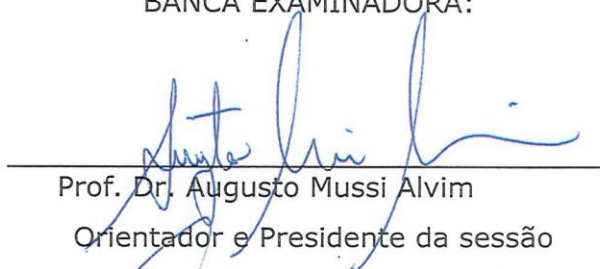 BANCA EXAMINADORA:
Prof. Dr. Augusto Mussi Alvim
Orientador e Presidente da sessão